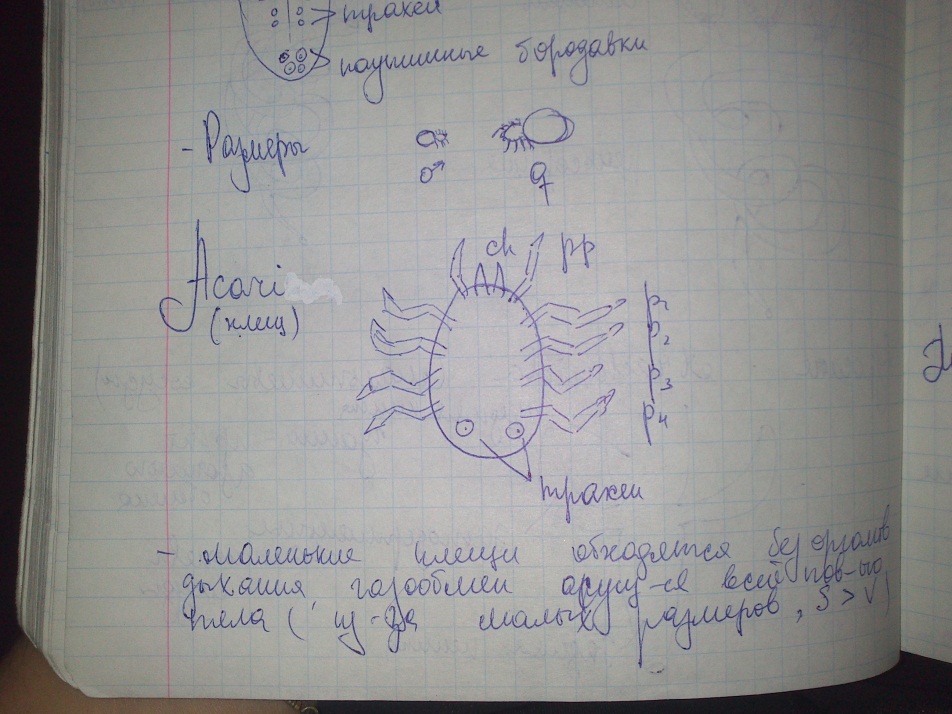 трахеи
паутинные бородавки
- Размеры
♂
♀
ch pp
Acari
(клещ)
p1
p2
p3
p4
трахеи
- маленькие клещи обходятся без органов
дыхания, газообмен осущ-ся всей пов-ью
тела ( из-за малых размеров, S > V)